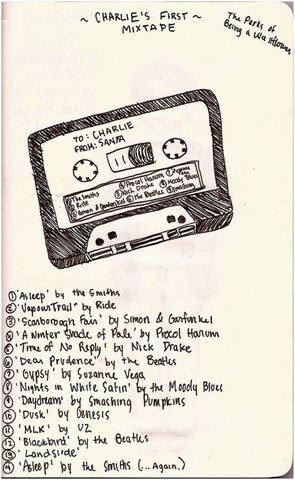 ~ CHARLIE'S FIRST ~
MIXTAPE
The Perks of
Being a Wallflower
TO: CHARLIE
FROM: SANTA
① The Smiths
② Ride
③ Simon & Garfunkel
④ Procol Harum
⑤ Nick Drake
⑥ the Beatles
⑦ Suzanne Vega
⑧ Moody Blues
⑨ Smashing
① 'Asleep' by the Smiths
② 'Vapour Trail' by Ride
③ 'Scarborough Fair' by Simon & Garfunkel
④ 'A Winter Shade of Pale' by Procol Harum
⑤ 'Time of No Reply' by Nick Drake
⑥ 'Dear Prudence' by the Beatles
⑦ 'Gypsy' by Suzanne Vega
⑧ 'Nights in White Satin' by the Moody Blues
⑨ 'Daydream' by Smashing Pumpkins
⑩ 'Dusk' by Genesis
⑪ 'MLK' by U2
⑫ 'Blackbird' by the Beatles
⑬ 'Landslide'
⑭ 'Asleep' by the Smiths (...Again.)